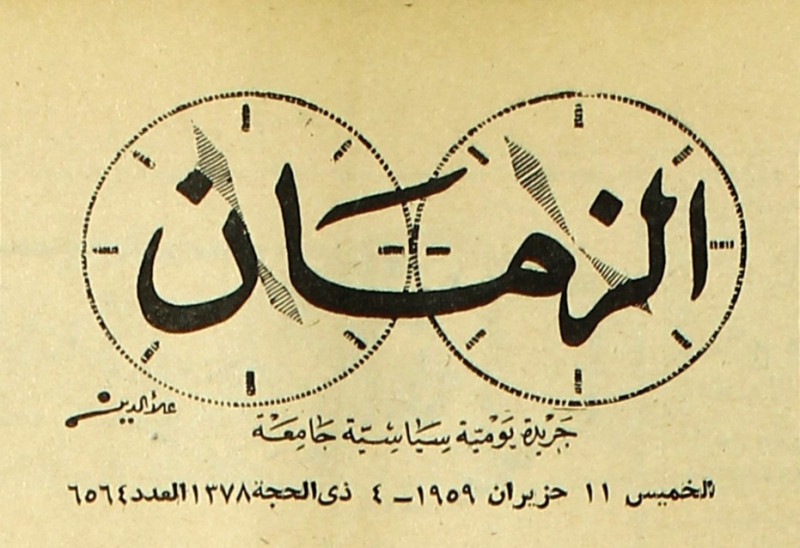 الزمان
علاءالدين
جَريْدة يَوْميّة سِيَاسِيّة جَامِعَة
الخميس ١١ حزيران ١٩٥٩ – ٤ ذى الحجة ١٣٧٨ العدد ٦٥٦٤